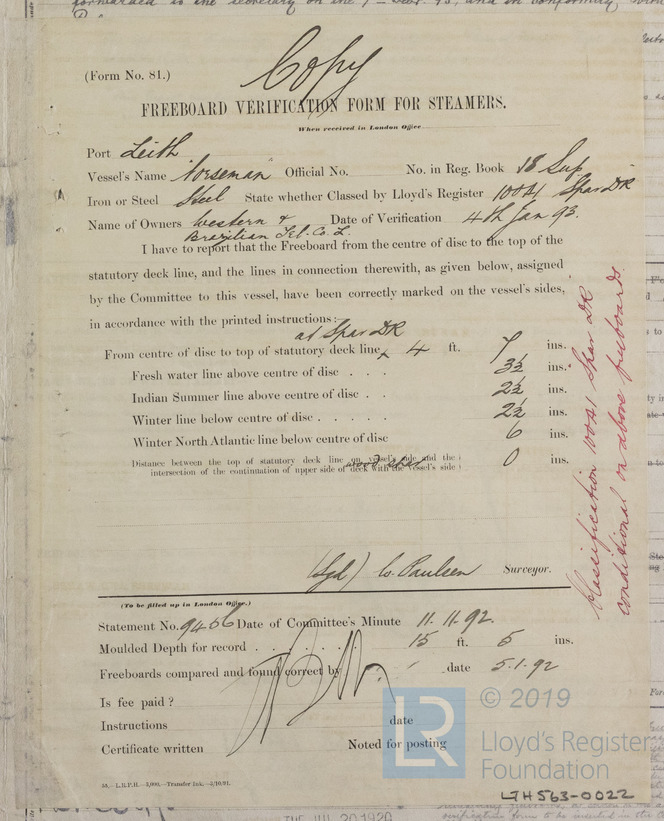 Copy
(Form No. 81.)
FREEBOARD VERIFICATION FORM FOR STEAMERS.
When received in London Office
Port Leith
Vessel's Name Norseman Official No. No. in Reg. Book 18 Sup
Iron or Steel Steel State whether Classed by Lloyd's Register 100A1 Spar DK
Name of Owners Western & Date of Verification 4th Jan 93.
Brazilian Tel. Co. L
I have to report that the Freeboard from the centre of disc to the top of the
statutory deck line, and the lines in connection therewith, as given below, assigned
by the Committee to this vessel, have been correctly marked on the vessel's sides,
in accordance with the printed instructions:—
at Spar DK
From centre of disc to top of statutory deck line, 4 ft. 7 ins.
Fresh water line above centre of disc . . . 3½ ins.
Indian Summer line above centre of disc . . 2½ ins.
Winter line below centre of disc . . . . . 2½ ins.
Winter North Atlantic line below centre of disc 6 ins.
Distance between the top of statutory deck line on vessel's side and the
intersection of the continuation of upper side of wood deck with the vessel's side 0 ins.
Classification 100A1 Spar DK
conditional on above freeboards.
(Sgd) W. Paulsen Surveyor.
(To be filled up in London Office.)
Statement No. 9456 Date of Committee's Minute 11.11.92.
Moulded Depth for record . . . 15 ft. 5 ins.
Freeboards compared and found correct by date 5.1.92
Is fee paid ?
Instructions date
Certificate written Noted for posting
LR © 2019
Lloyd's Register
Foundation
LJH563-0022